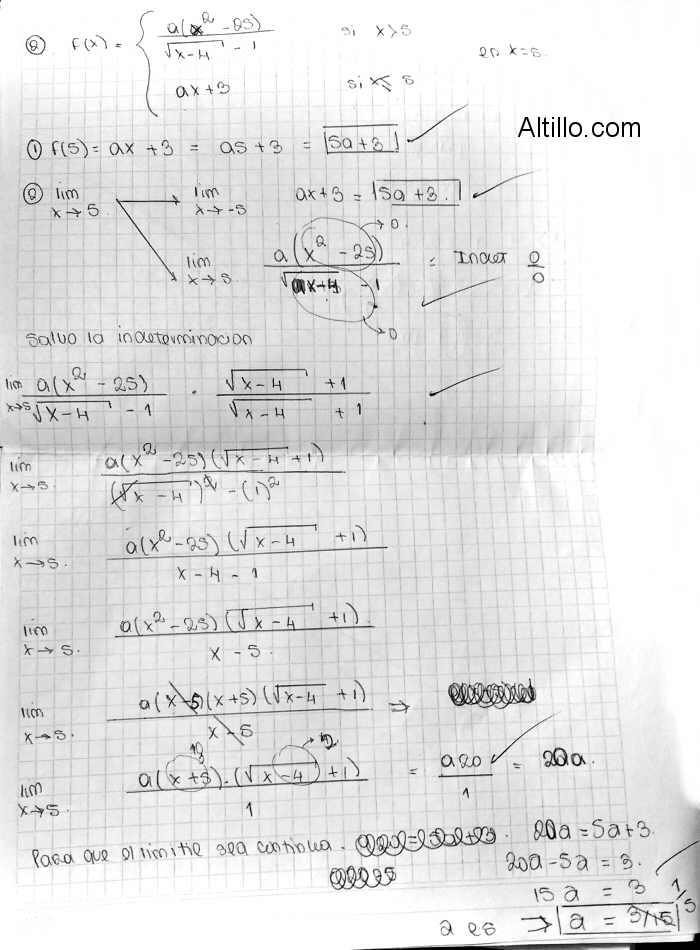 ② F(x) = { a(x² - 25) / √(x-4) - 1 si x>5
en x=5.
ax+3 si x≤5
Altillo.com
① f(5) = ax + 3 = a5 + 3 = 5a+3
② lim x→5. lim x→-5 ax+3 = 5a+3.
lim x→5. a(x² - 25) / √(x-4) - 1 = Indet 0/0
→0.
→0
Salvo la indeterminacion
lim x→5 a(x² - 25) / √(x-4) - 1 . √(x-4) + 1 / √(x-4) + 1
lim x→5. a(x² - 25) (√(x-4) + 1) / (√(x-4))² - (1)²
lim x→5. a(x² - 25) (√(x-4) + 1) / x - 4 - 1
lim x→5. a(x² - 25) (√(x-4) + 1). / x - 5.
lim x→5. a(x-5)(x+5) (√(x-4) + 1) / x - 5 ⇒
lim x→5. a(x+5).(√(x-4) + 1) / 1 = a20 / 1 = 20a.
Para que el limite sea continua. 20a = 5a+3.
20a - 5a = 3.
15 a = 3
a es ⇒ a = 3/15 1/5